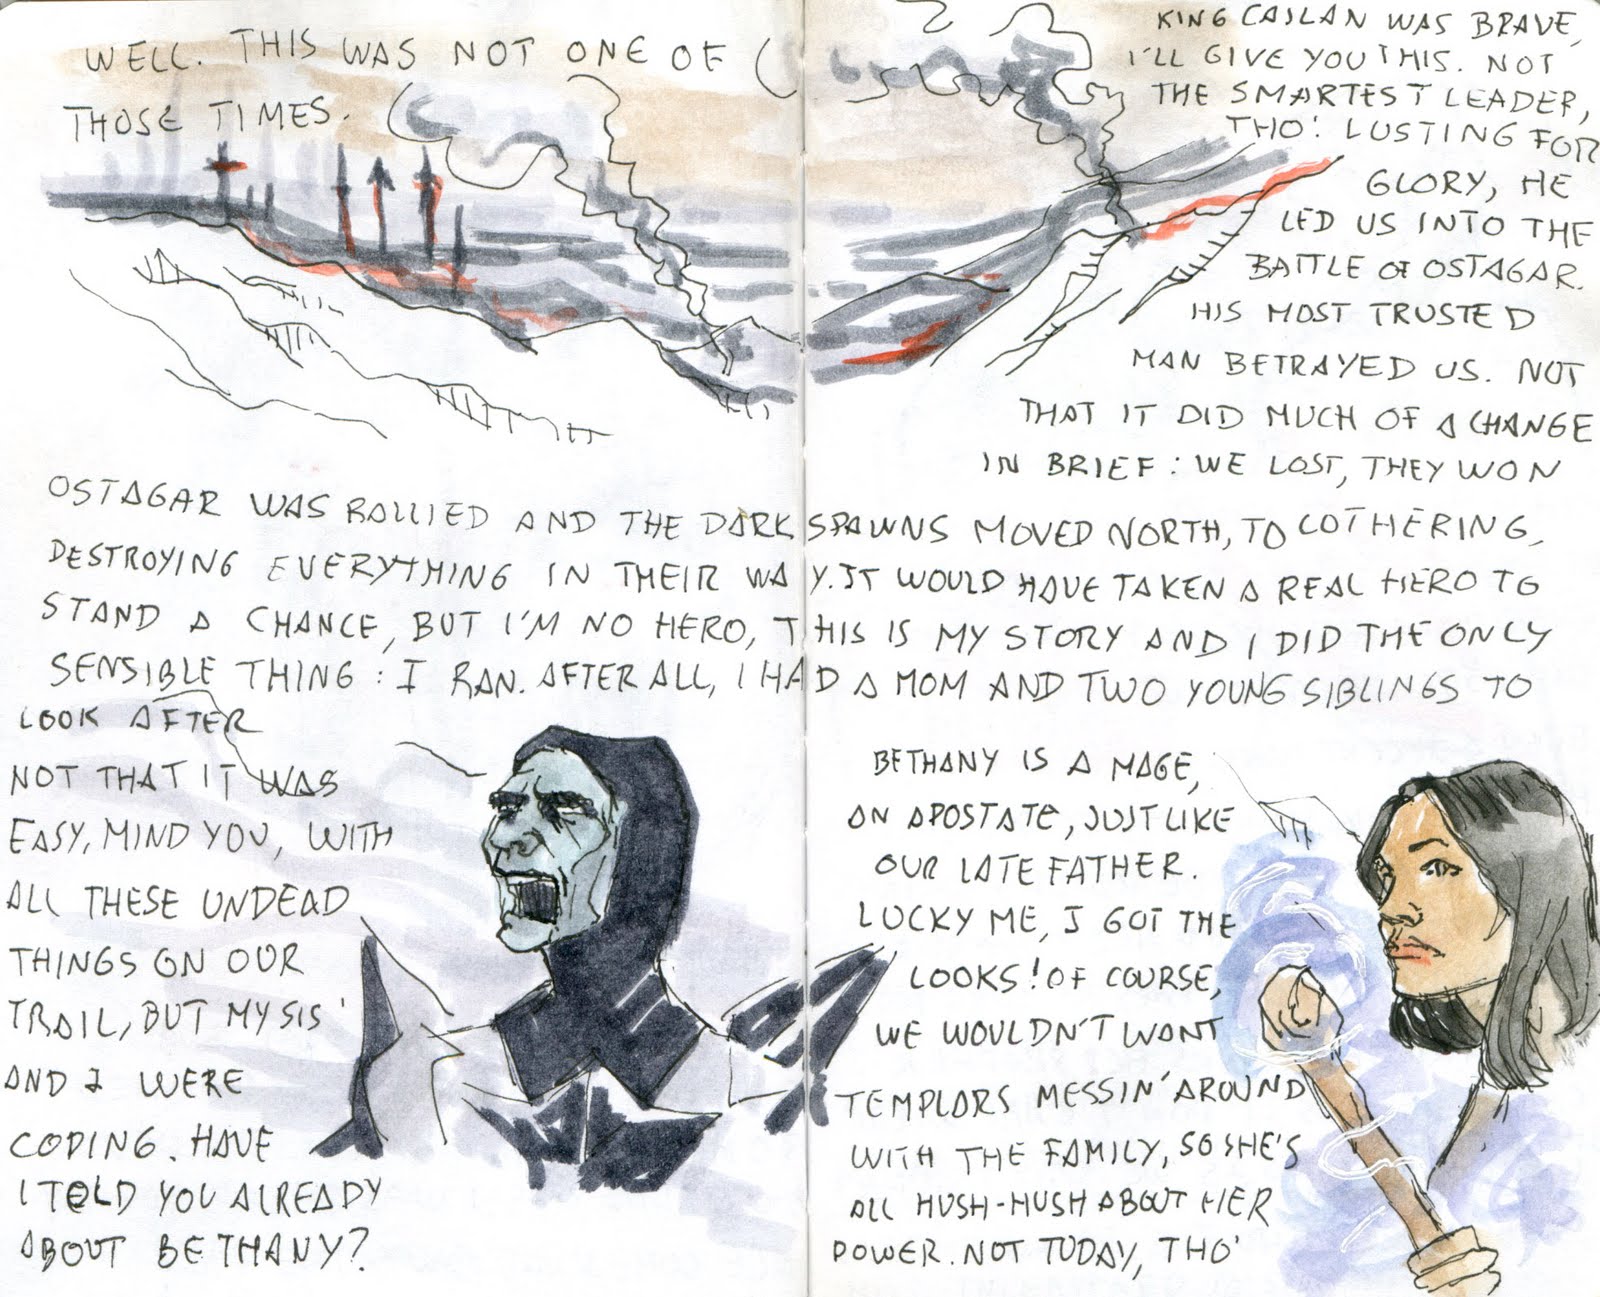 WELL. THIS WAS NOT ONE OF
THOSE TIMES.
KING CAILAN WAS BRAVE,
I'LL GIVE YOU THIS. NOT
THE SMARTEST LEADER,
THO'. LUSTING FOR
GLORY, HE
LED US INTO THE
BATTLE OF OSTAGAR.
HIS MOST TRUSTED
MAN BETRAYED US. NOT
THAT IT DID MUCH OF A CHANGE
IN BRIEF: WE LOST, THEY WON
OSTAGAR WAS RALLIED AND THE DARKSPAWNS MOVED NORTH, TO LOTHERING,
DESTROYING EVERYTHING IN THEIR WAY. IT WOULD HAVE TAKEN A REAL HERO TO
STAND A CHANCE, BUT I'M NO HERO, THIS IS MY STORY AND I DID THE ONLY
SENSIBLE THING: I RAN. AFTER ALL, I HAD A MOM AND TWO YOUNG SIBLINGS TO
LOOK AFTER
NOT THAT IT WAS
EASY, MIND YOU, WITH
ALL THESE UNDEAD
THINGS ON OUR
TRAIL, BUT MY SIS'
AND I WERE
COPING. HAVE
I TOLD YOU ALREADY
ABOUT BETHANY?
BETHANY IS A MAGE,
AN APOSTATE, JUST LIKE
OUR LATE FATHER.
LUCKY ME, I GOT THE
LOOKS! OF COURSE,
WE WOULDN'T WANT
TEMPLARS MESSIN' AROUND
WITH THE FAMILY, SO SHE'S
ALL HUSH-HUSH ABOUT HER
POWER. NOT TODAY, THO'